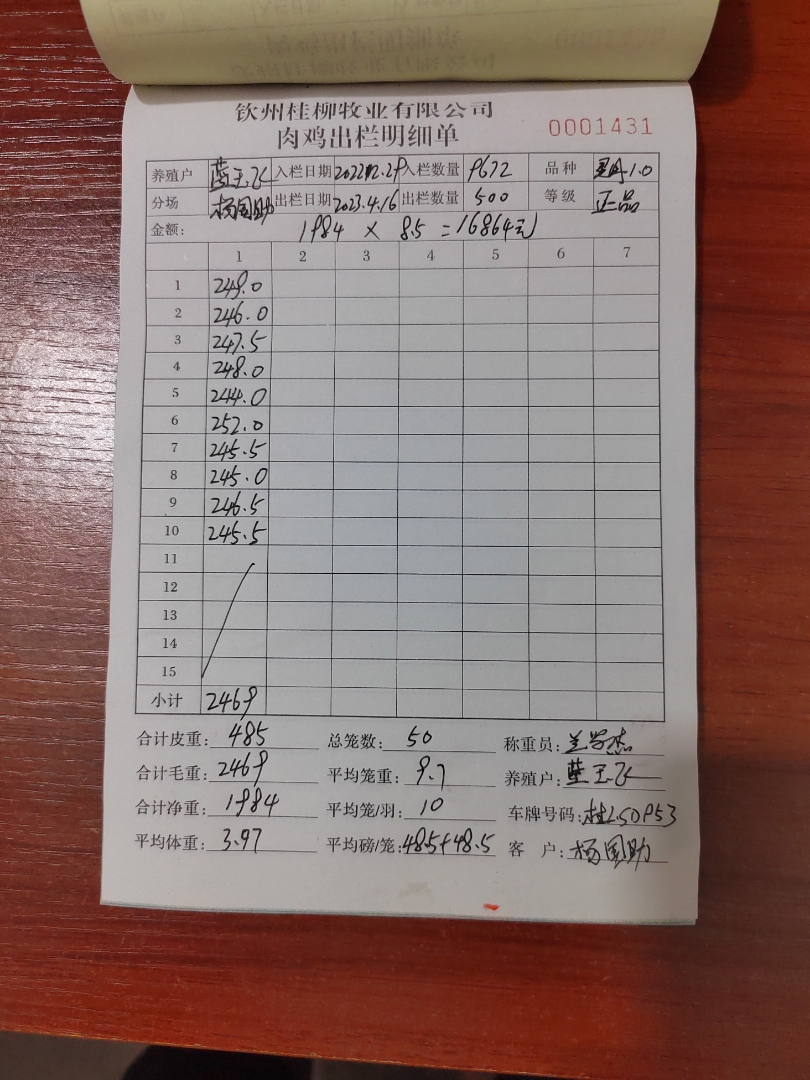 钦州桂柳牧业有限公司
肉鸡出栏明细单 0001431
养殖户 蓝玉飞 入栏日期 2022.12.29 入栏数量 9672 品种 1.0
分场 杨国助 出栏日期 2023.4.16 出栏数量 500 等级 正品
金额: 1984 × 8.5 = 16864元
1 2 3 4 5 6 7
1 249.0
2 246.0
3 247.5
4 248.0
5 244.0
6 252.0
7 245.5
8 245.0
9 246.5
10 245.5
11
12
13
14
15
小计 2469
合计皮重: 485 总笼数: 50 称重员: 兰学杰
合计毛重: 2469 平均笼重: 9.7 养殖户: 蓝玉飞
合计净重: 1984 平均笼/羽: 10 车牌号码: 桂L50P53
平均体重: 3.97 平均磅/笼: 48.5+48.5 客 户: 杨国助